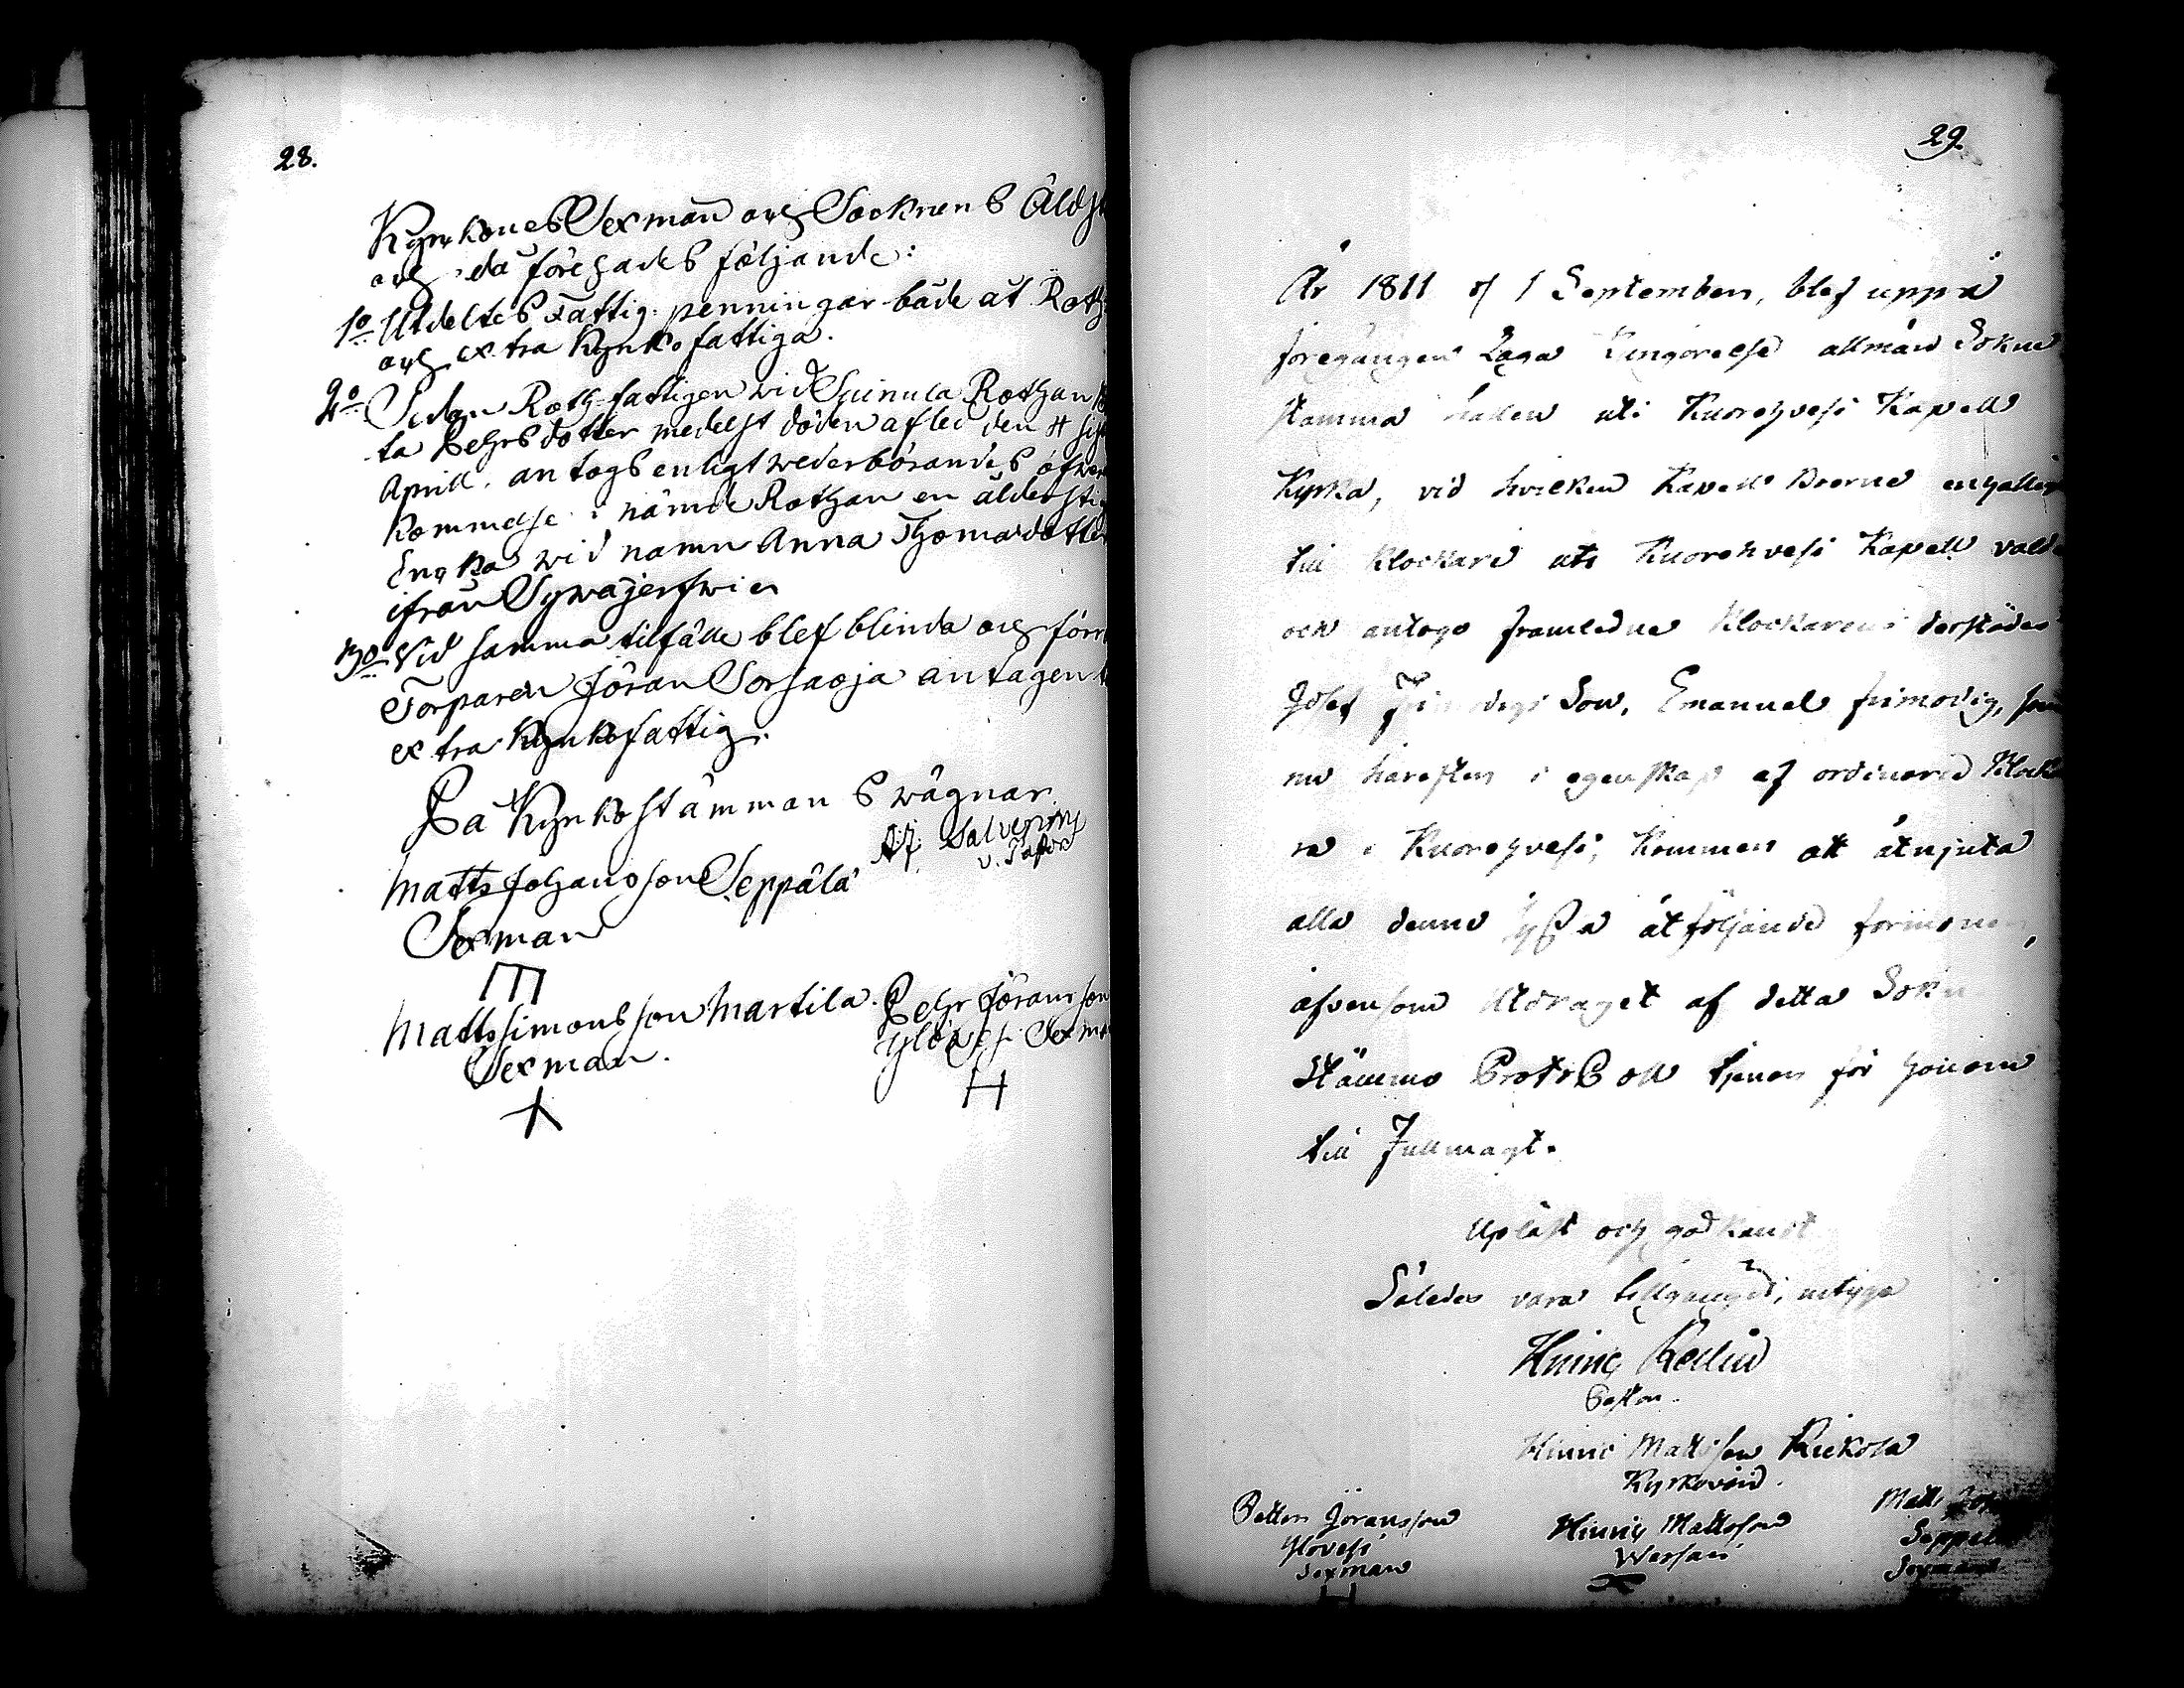 28.
Kyrkones Sexmän och Soknens Äldst
och då förehades följande:
1o Utdeltes Fattig-penningar både åt Roth
och extra Kyrko fattiga.
2o Sedan Roth-fattigen wid Suinula Rothan
ta Pehrsdotter medelst döden afled den sist
Aprill. antogs enligt wederbörandes öfwer
kommelse i nämde Rothan en ålderstig
Enka wid namn Anna Thomasdotter
ifrån Sywäjerfwi
3o Vid samma tilfälle blef blinda och förr
Torparen Jöran Sorsaoja antagen
extra Kyrkofattig.
På Kyrkostämmans wägnar
Salvenius
v. Pastor
Matts Johansson Seppälä
Sexman
Matts Simonsson Martila. Pehr Jöransson
Sexman. Ylövesi Sexman
29.
År 1811 d 1 September, blef uppå
föregången Laga Kungörelse allmän Sokne
stämma hållen uti Kuorehvesi Kapell
Kyrka, vid hvilken Kapell Boerne enhällig
till Klockare uti Kuorehvesi Kapell valde
och antogo framledne Klockarens derstädes
Josef Frimodigs Son, Emanuel Frimodig, som
nu härefter i egenskap af ordinarie Klocka
re i Kuorehvesi, kommer att åtnjuta
alla denne syßla åtföljande förmoner,
äfvensom Utdraget af detta Sokne
Stämmo Protokoll tjenar för honom
till Fullmagt.
Upläst och godkändt
Således vara tillgånget, intyga
Hinric Rellin
Pastor.
Hinric Mattsson Riekola
Kyrkovärd.
Petter Jöransson Hinric Mattsson Matts Joh
Ylövesi Wessari Seppälä
Sexman Sexman